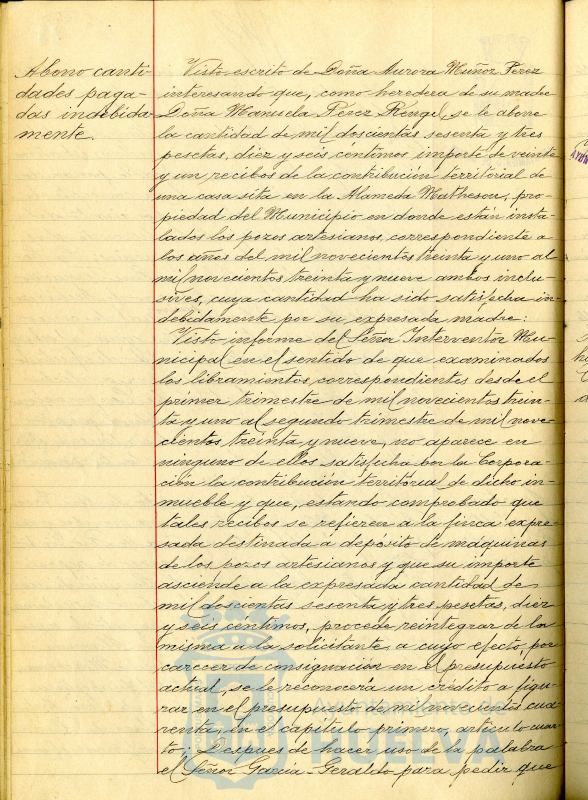 Abono canti-
dades paga-
das indebida-
mente.
Visto escrito de Doña Aurora Muñoz Pérez
interesando que, como heredera de su madre
Doña Manuela Pérez Rengel, se le abone
la cantidad de mil doscientas sesenta y tres
pesetas, diez y seis céntimos importe de veinte
y un recibos de la contribución territorial de
una casa sita en la Alameda Matheson, pro-
piedad del Municipio en donde están insta-
lados los pozos artesianos, correspondiente a
los años del mil novecientos treinta y uno al
mil novecientos treinta y nueve ambos inclu-
sives, cuya cantidad ha sido satisfecha in-
debidamente por su expresada madre:
Visto informe del Señor Interventor Mu-
nicipal en el sentido de que examinados
los libramientos correspondientes desde el
primer trimestre de mil novecientos trein-
ta y uno al segundo trimestre de mil nove-
cientos treinta y nueve, no aparece en
ninguno de ellos satisfecha por la Corpora-
ción la contribución territorial de dicho in-
mueble y que, estando comprobado que
tales recibos se refieren a la finca expre-
sada destinada a depósito de máquinas
de los pozos artesianos y que su importe
asciende a la expresada cantidad de
mil doscientas sesenta y tres pesetas, diez
y seis céntimos, procede reintegrar de la
misma a la solicitante, a cuyo efecto por
carecer de consignación en el presupuesto
actual, se le reconocerá un crédito a figu-
rar en el presupuesto de mil novecientos cua-
renta, en el capítulo primero, artículo cuar-
to; Después de hacer uso de la palabra
el Señor García-Geraldo para pedir que
HUELVA